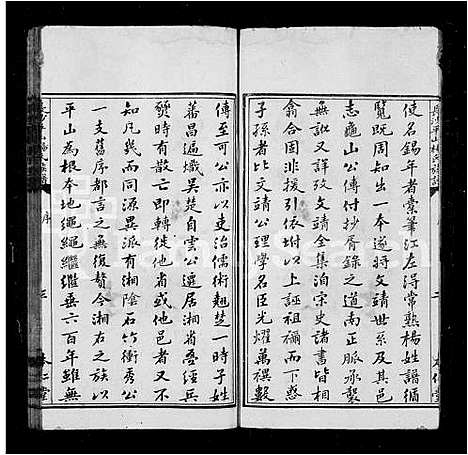 長沙平山楊氏族譜
使名錫年者橐筆江左得常熟楊姓譜徧
覽既周知出一本者文靖
志龜山公傳付抄胥錄之道南正脈承繫
無感又詳攷文靖全集洎宗史諸書皆相
翕合固非援引依坿以上誣祖自欺
子孫者比文靖公理學名臣光耀萬禩數
二
本仁堂
傳至可公亦以吏治儒術翹楚一時子姓
蕃昌遍熾吳楚自雲公遷居湘省疊經兵
燹時有散亡即轉徙他省或他邑者又不
知凡幾而同源異派有湘陰石竹衝秀公
一支舊序都言之無復贅今湘右之族以
平山為根本地繩繩繼繼垂六百年雖無
序
三
本仁堂